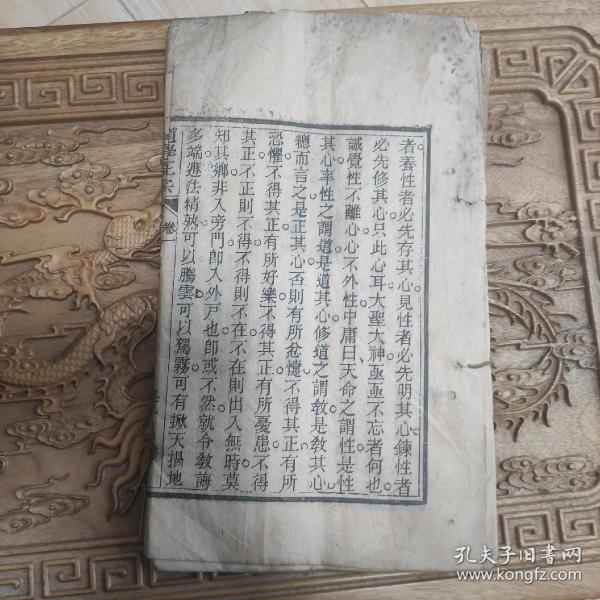 者養性者必先存其心見性者必先明其心鍊性者
必先修其心只此心耳大聖大神亟亟不忘者何也
誠覺性不離心心不外性中庸曰天命之謂性是性
其心率性之謂道是道其心修道之謂教是教其心
總而言之是正其心否則有所忿懥不得其正有所
恐懼不得其正有所好樂不得其正有所憂患不得
其正不正則不得不得則不在不在則出入無時莫
知其鄉非入旁門即入外戸也即或不然就令教誨
多端遯法精熟可以騰雲可以駕霧可有掀天揭地
卷一
孔夫子旧书网
www.kongfz.com